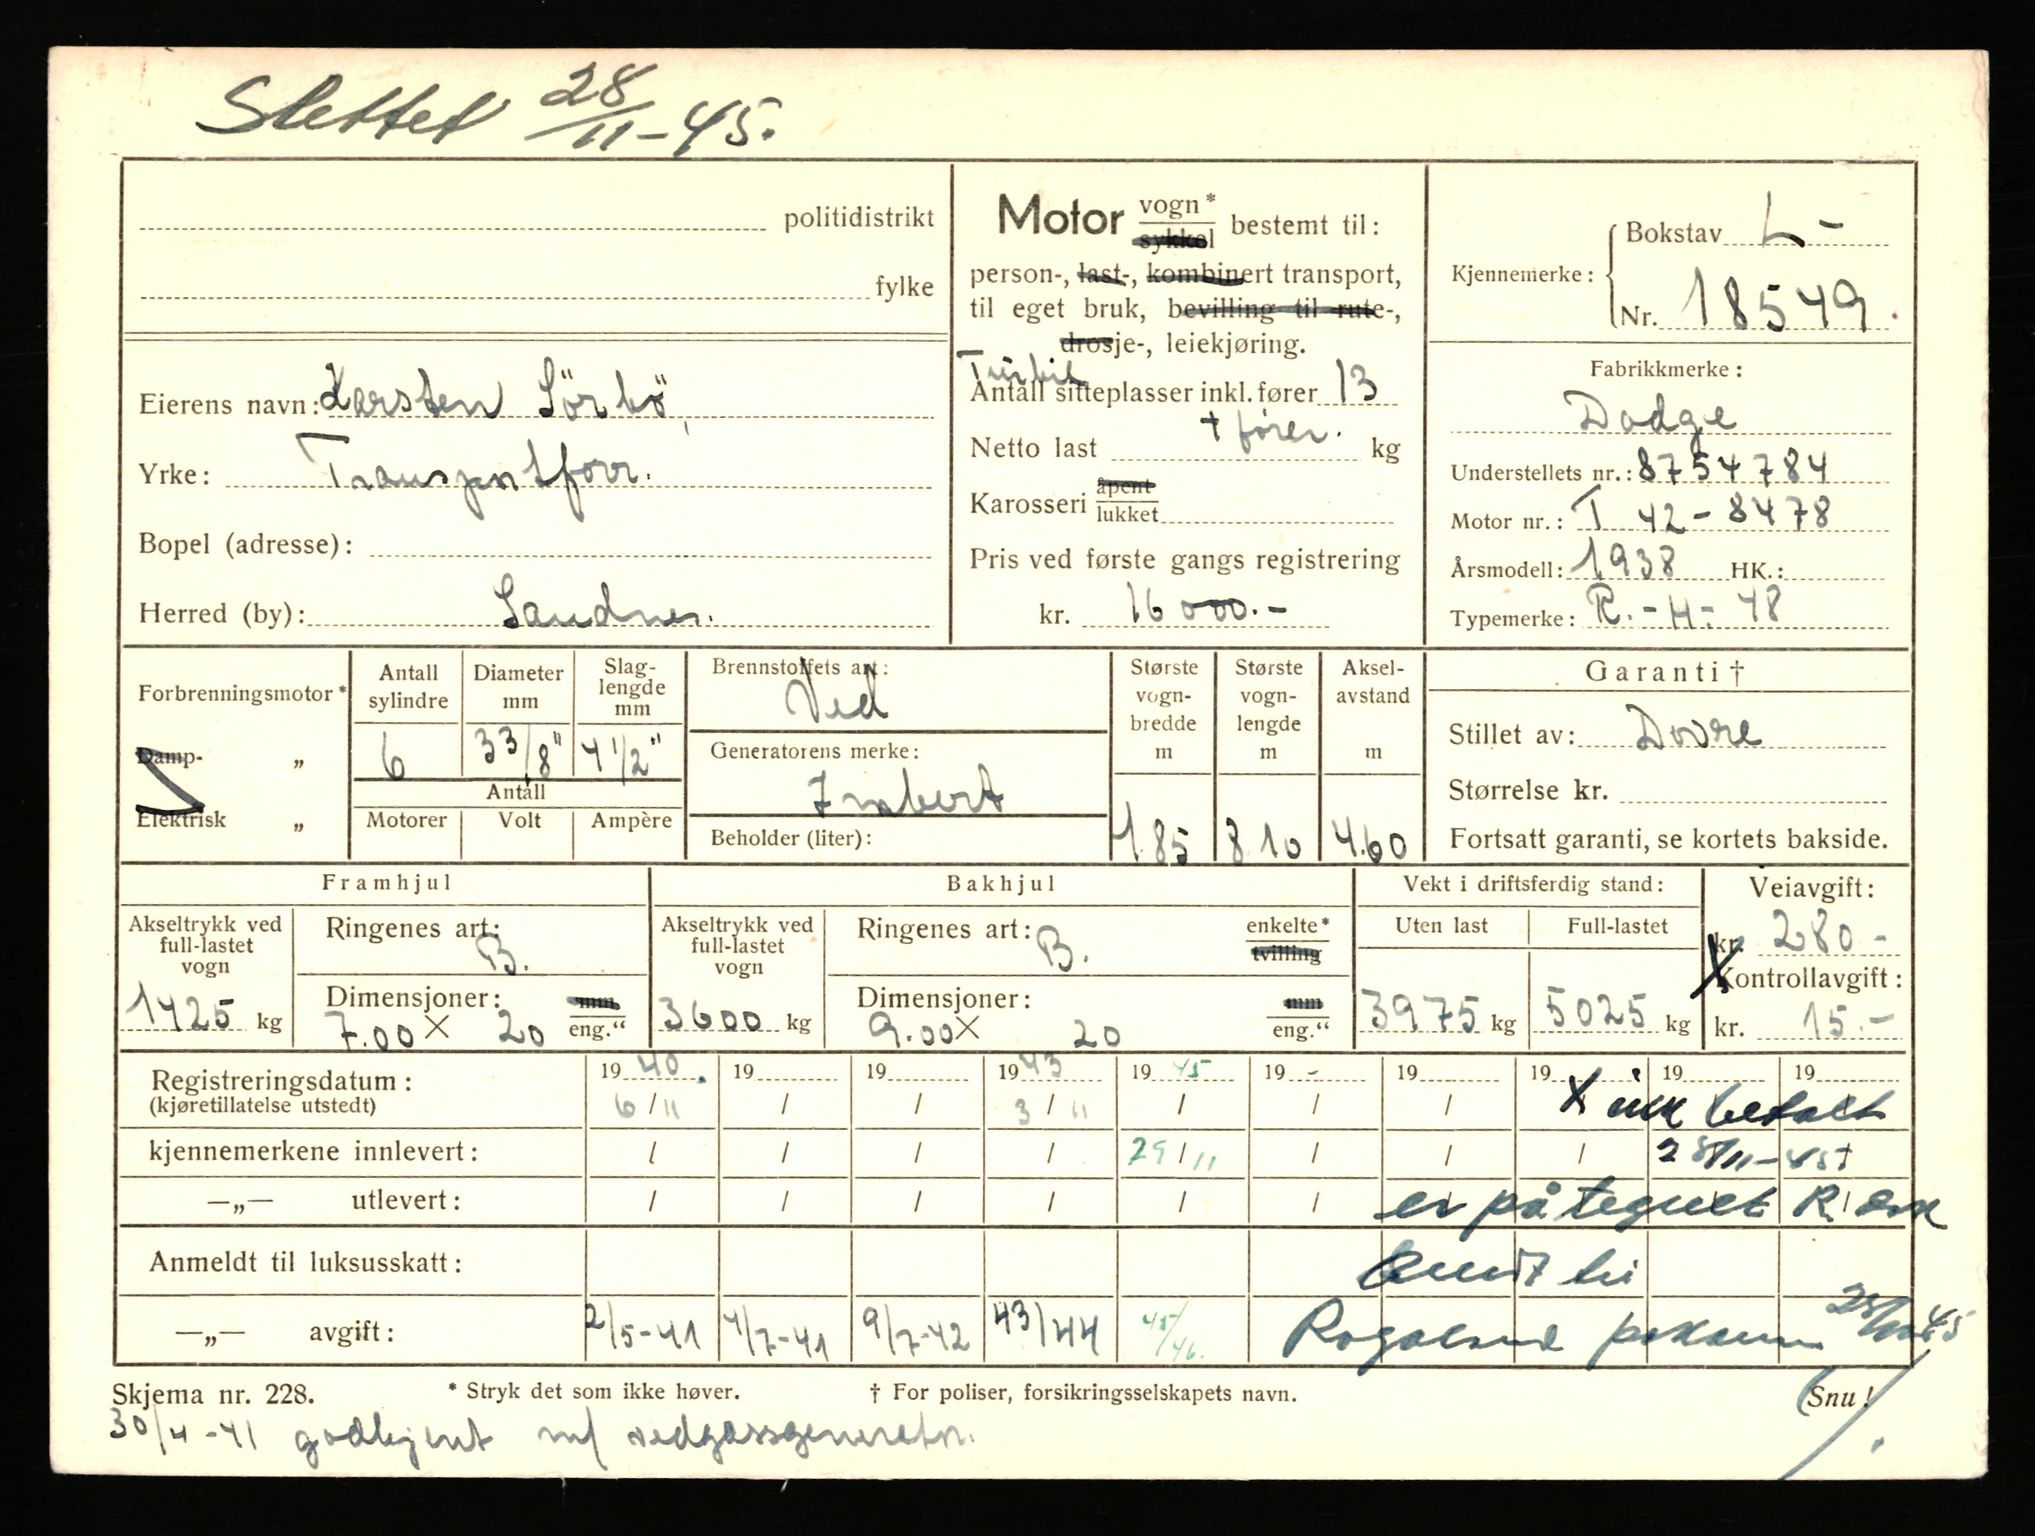 Slettet 28/11-45.
politidistrikt
fylke
Motor vogn* sykkel bestemt til:
person-, last-, kombinert transport,
til eget bruk, bevilling til rute-,
drosje-, leiekjøring.
Turbil
Antall sitteplasser inkl. fører 13
+ fører.
Netto last kg
Karosseri åpent lukket
Pris ved første gangs registrering
kr. 16 000.-
Kjennemerke: Bokstav L-
Nr. 18549.
Fabrikkmerke:
Dodge
Understellets nr.: 8754784
Motor nr.: T 42-8478
Årsmodell: 1938 HK.:
Typemerke: R.-H-48
Eierens navn: Karsten Sörbö,
Yrke: Transportforr.
Bopel (adresse):
Herred (by): Sandnes.
Forbrenningsmotor*
Damp- „
Elektrisk „
Antall sylindre 6
Diameter mm 3 3/8"
Slag-lengde mm 4 1/2"
Antall
Motorer Volt Ampère
Brennstoffets art:
Ved
Generatorens merke:
Imbert
Beholder (liter):
Største vogn-bredde m 1.85
Største vogn-lengde m 8 10
Aksel-avstand m 4.60
Garanti †
Stillet av: Dovre
Størrelse kr.
Fortsatt garanti, se kortets bakside.
Framhjul
Akseltrykk ved full-lastet vogn
1425 kg
Ringenes art: B.
Dimensjoner: mm
7.00 X 20 eng.“
Bakhjul
Akseltrykk ved full-lastet vogn
3600 kg
Ringenes art: B. enkelte* tvilling
Dimensjoner: mm
9.00 X 20 eng.“
Vekt i driftsferdig stand:
Uten last Full-lastet
3975 kg 5025 kg
Veiavgift:
kr. 280.-
X Kontrollavgift:
kr. 15.-
Registreringsdatum: 19 40. 19 19 19 43 19 45 19 - 19 19 19 19
(kjøretillatelse utstedt) 6/11 / / 3/11 / / / X ikk betalt
kjennemerkene innlevert: / / / / 29/11 / / / 28/11-45
—„— utlevert: / / / / / / er påtegnet
Anmeldt til luksusskatt: sendt til
—„— avgift: 2/5-41 4/7-41 9/7-42 43/44 45/46. Rogaland
Skjema nr. 228. * Stryk det som ikke høver. † For poliser, forsikringsselskapets navn. (Snu!
30/4-41 godkjent m/ vedgassgenerator.